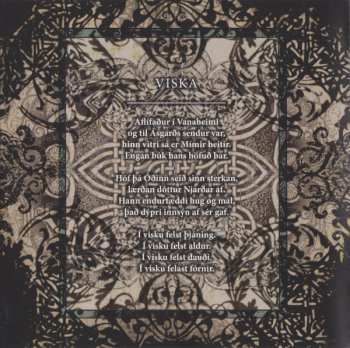 VISKA
Aflífaður í Vanaheimi
og til Ásgarðs sendur var,
hinn vitri sá er Mímir heitir.
Engan búk hans höfuð bar.
Hóf þá Óðinn seið sinn sterkan,
Lærðan dóttur Njarðar af.
Hann endurfæddi hug og mál,
það dýpri innsýn af sér gaf.
Í visku felst þjáning.
Í visku felst aldur.
Í visku felst dauði.
Í visku felast fórnir.